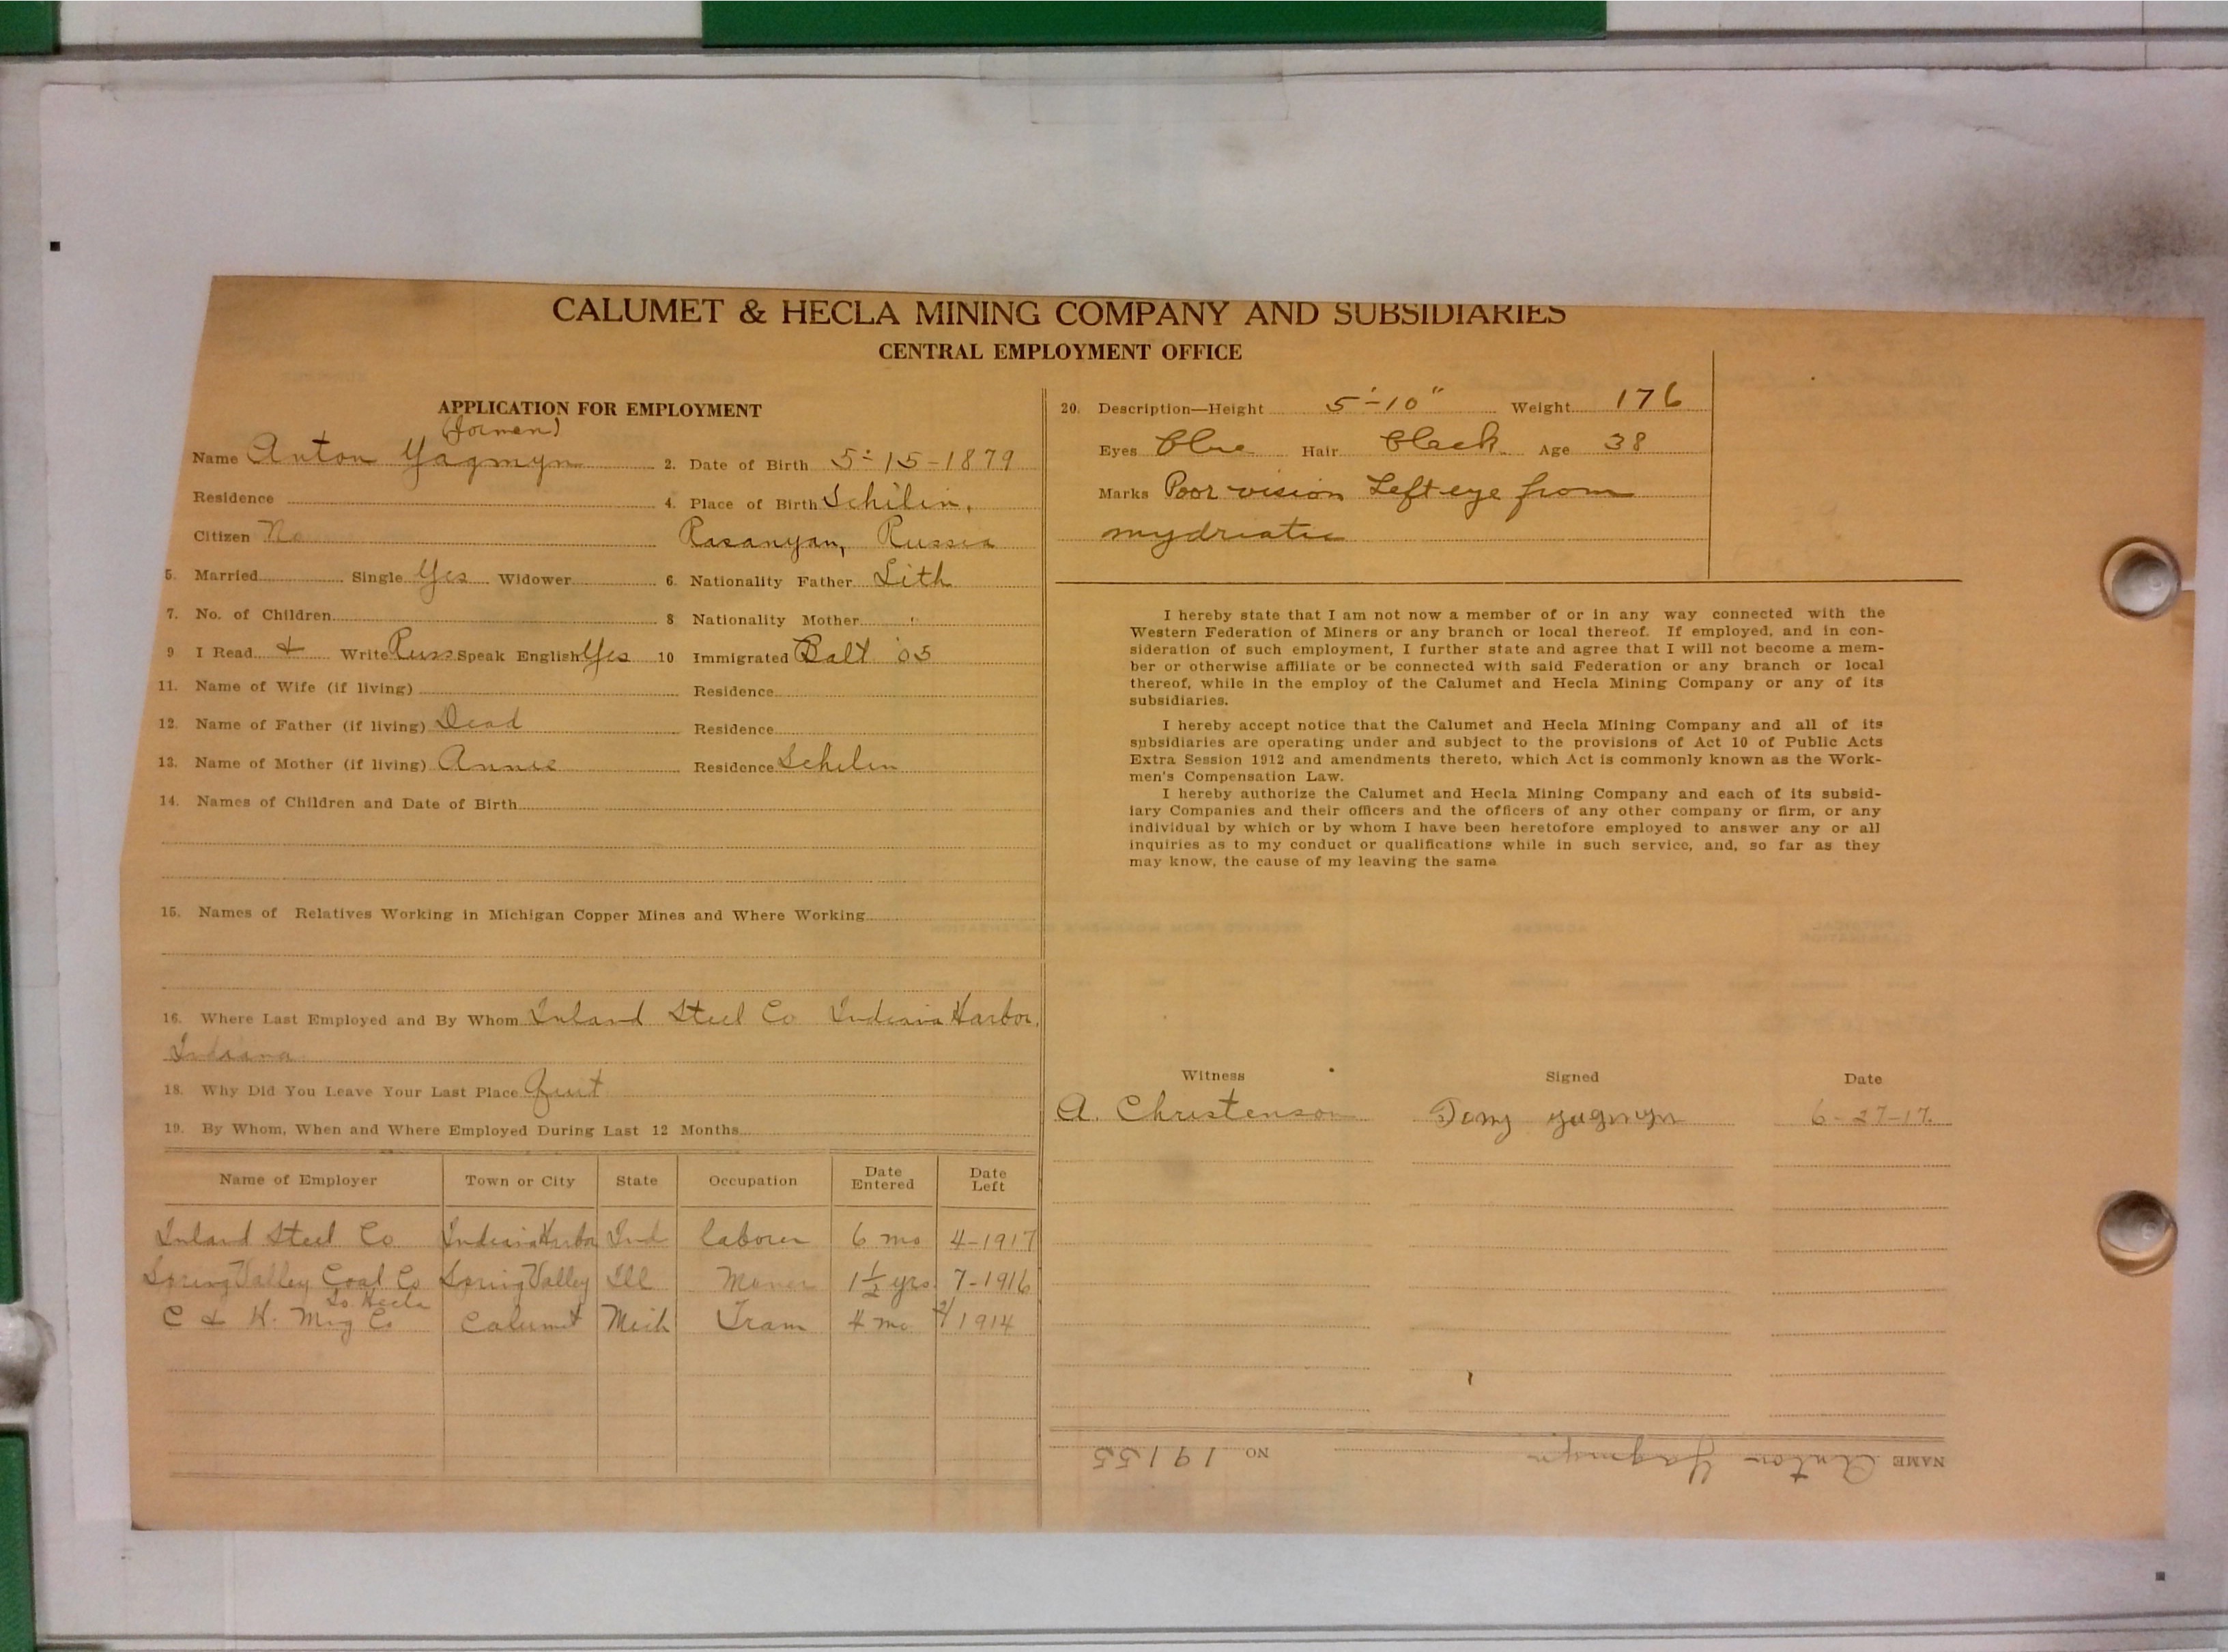 CALUMET & HECLA MINING COMPANY AND SUBSIDIARIES
CENTRAL EMPLOYMENT OFFICE
APPLICATION FOR EMPLOYMENT
Name Anton Yagmyn
2. Date of Birth 5-15-1879
Residence
4. Place of Birth Schilin,
Citizen No
Rasanyan, Russia
5. Married Single Yes Widower
6. Nationality Father Lith
7. No. of Children
8 Nationality Mother "
9 I Read & Write Russ Speak English Yes
10 Immigrated Balt '05
11. Name of Wife (if living) Residence
12. Name of Father (if living) Dead Residence
13. Name of Mother (if living) Annie Residence Schilin
14. Names of Children and Date of Birth
15. Names of Relatives Working in Michigan Copper Mines and Where Working
16. Where Last Employed and By Whom Inland Steel Co Indiana Harbor,
Indiana
18. Why Did You Leave Your Last Place Quit
19. By Whom, When and Where Employed During Last 12 Months
Name of Employer Town or City State Occupation Date Entered Date Left
Inland Steel Co Indiana Harbor Ind laborer 6 mo 4-1917
Spring Valley Coal Co Spring Valley Ill Miner 1½ yrs. 7-1916
So. Hecla
C & H. Mng Co Calumet Mich Tram 4 mo 1914
20. Description—Height 5'-10" Weight 176
Eyes Blue Hair Black Age 38
Marks Poor vision Left eye from
mydriatic
I hereby state that I am not now a member of or in any way connected with the
Western Federation of Miners or any branch or local thereof. If employed, and in con-
sideration of such employment, I further state and agree that I will not become a mem-
ber or otherwise affiliate or be connected with said Federation or any branch or local
thereof, while in the employ of the Calumet and Hecla Mining Company or any of its
subsidiaries.
I hereby accept notice that the Calumet and Hecla Mining Company and all of its
subsidiaries are operating under and subject to the provisions of Act 10 of Public Acts
Extra Session 1912 and amendments thereto, which Act is commonly known as the Work-
men's Compensation Law.
I hereby authorize the Calumet and Hecla Mining Company and each of its subsid-
iary Companies and their officers and the officers of any other company or firm, or any
individual by which or by whom I have been heretofore employed to answer any or all
inquiries as to my conduct or qualifications while in such service, and, so far as they
may know, the cause of my leaving the same
Witness Signed Date
A. Christenson Tony yagmyn 6-27-17.
NAME Anton Yagmyn NO 19155